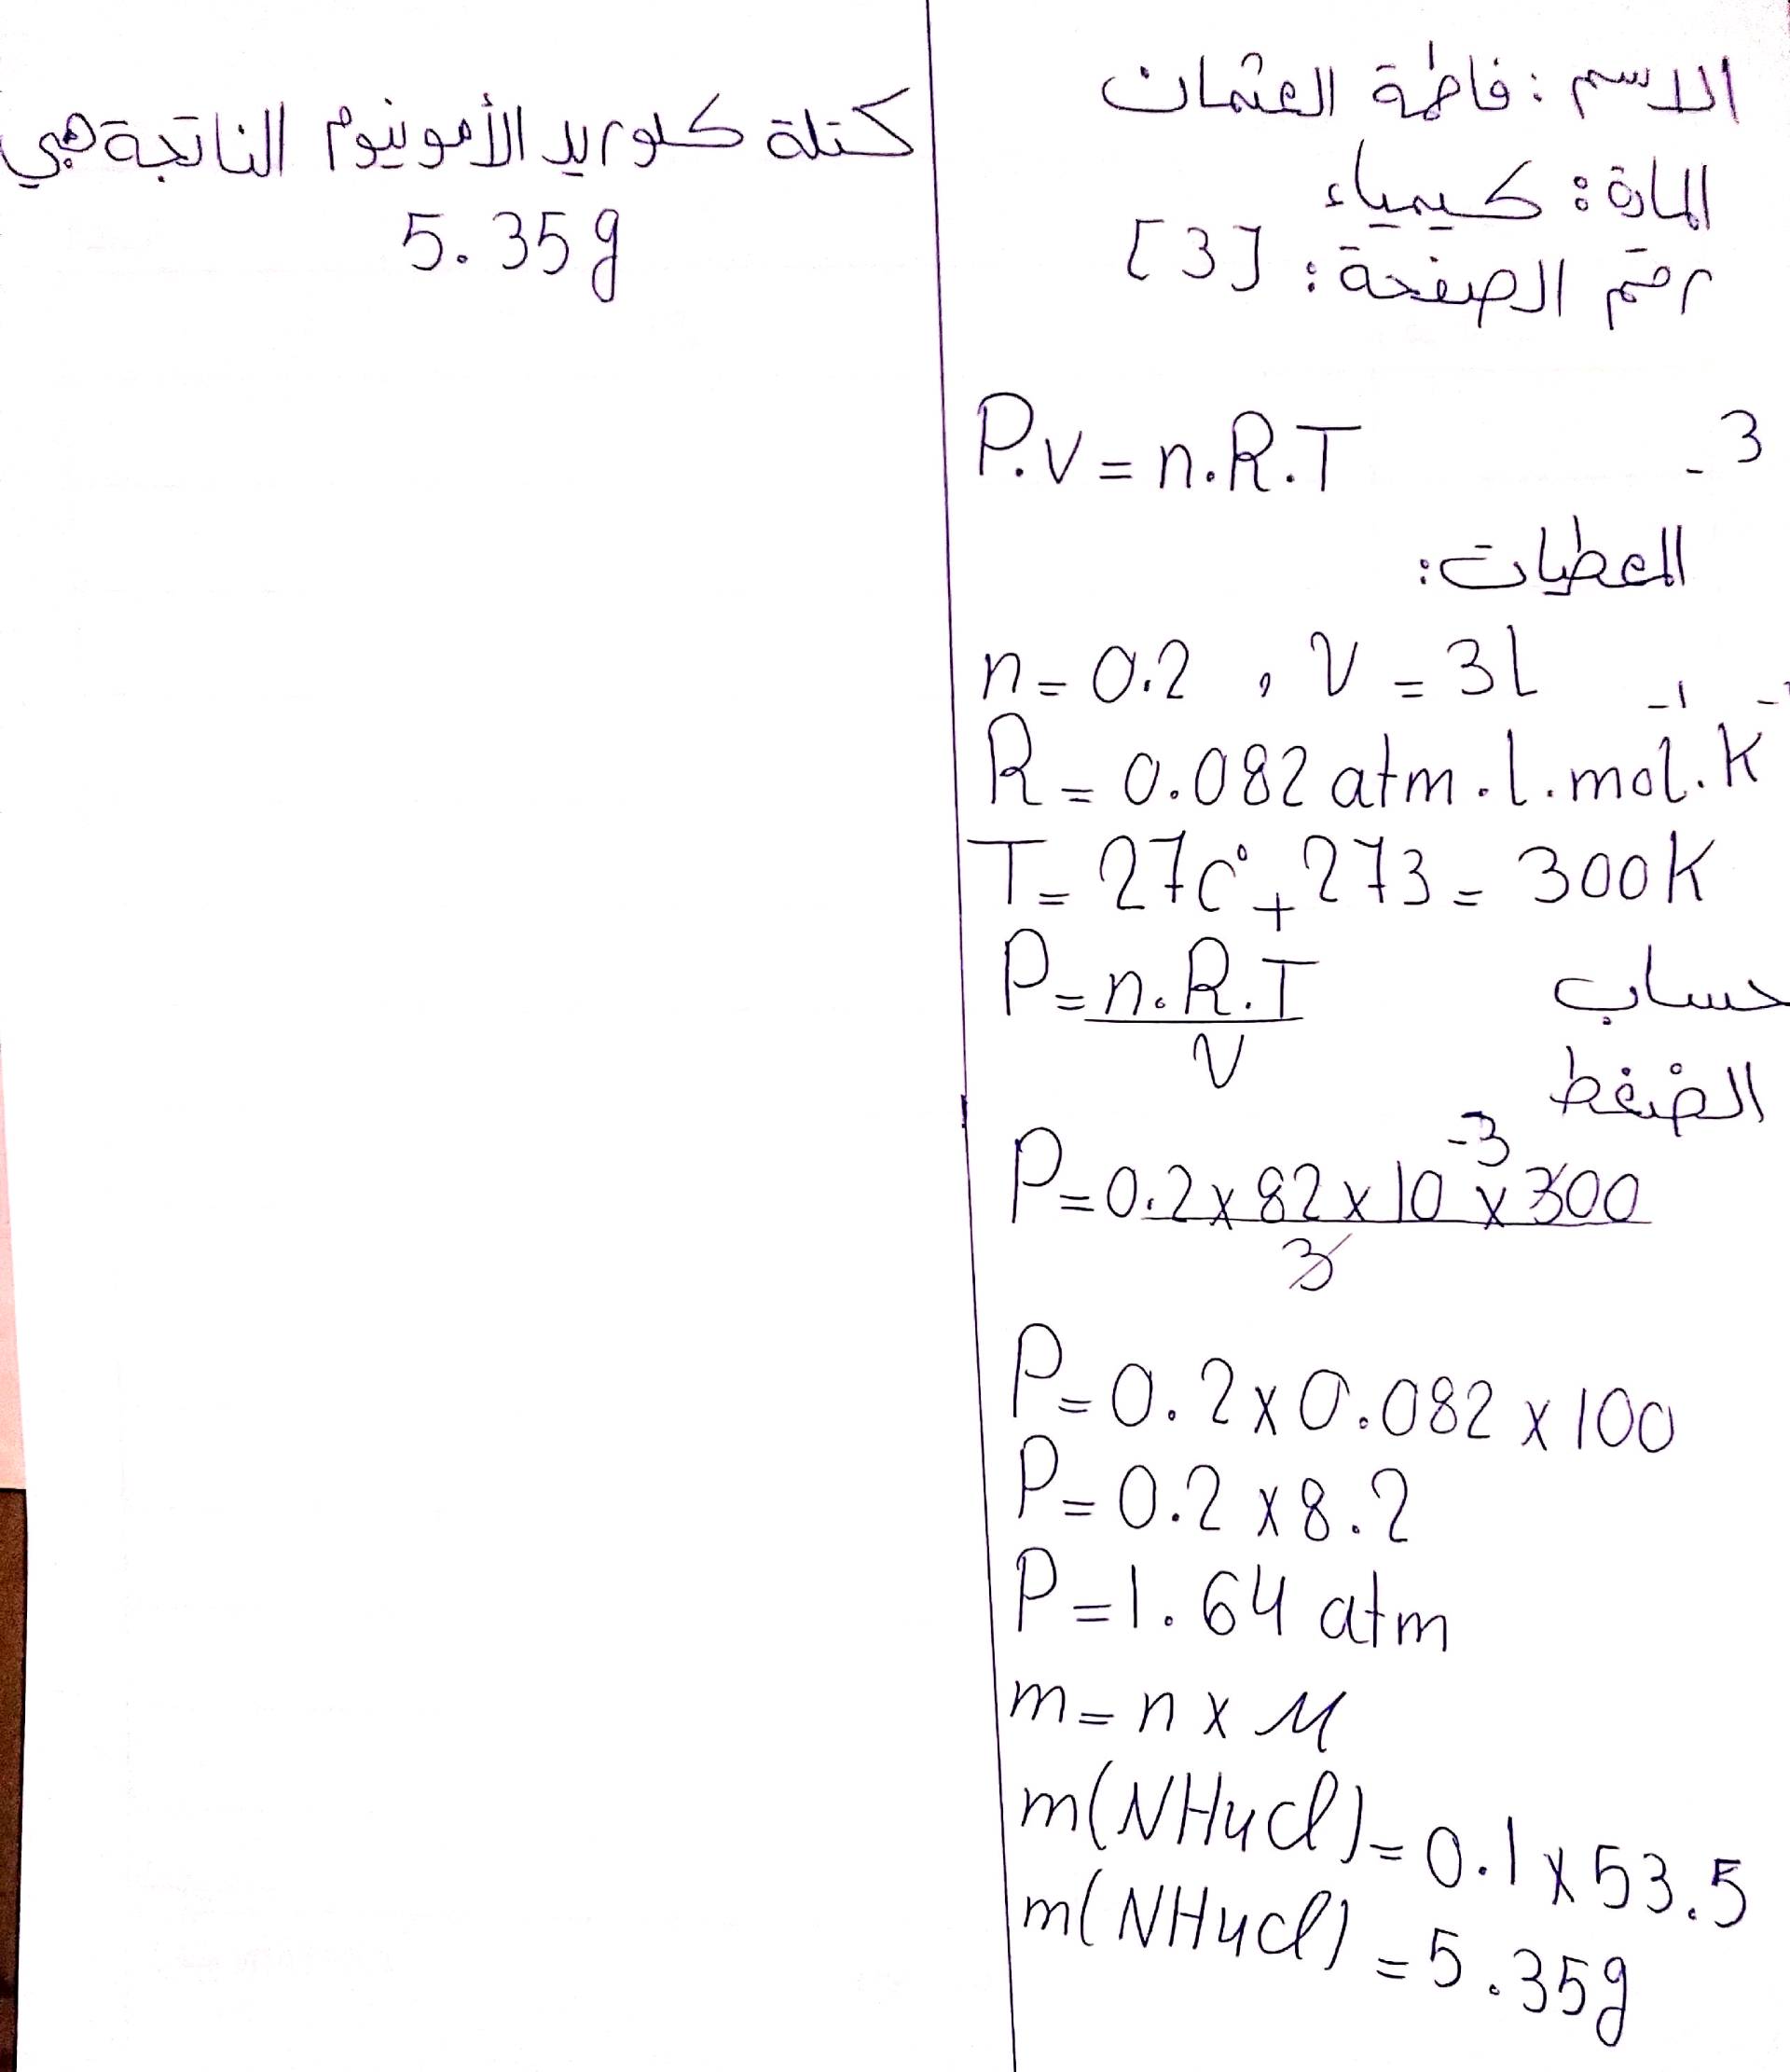 الاسم: فاطمة العثمان
المادة: كيمياء
رقم الصفحة: [3]
3 -
P.V = n.R.T
المعطيات:
n = 0.2 , V = 3l
R = 0.082 atm.l.mol⁻¹.K⁻¹
T = 27c° + 273 = 300K
حساب الضغط
P = n.R.T / V
P = 0.2 x 82 x 10⁻³ x 300 / 3
P = 0.2 x 0.082 x 100
P = 0.2 x 8.2
P = 1.64 atm
m = n x M
m(NH4Cl) = 0.1 x 53.5
m(NH4Cl) = 5.35g
كتلة كلوريد الأمونيوم الناتجة هي
5.35g